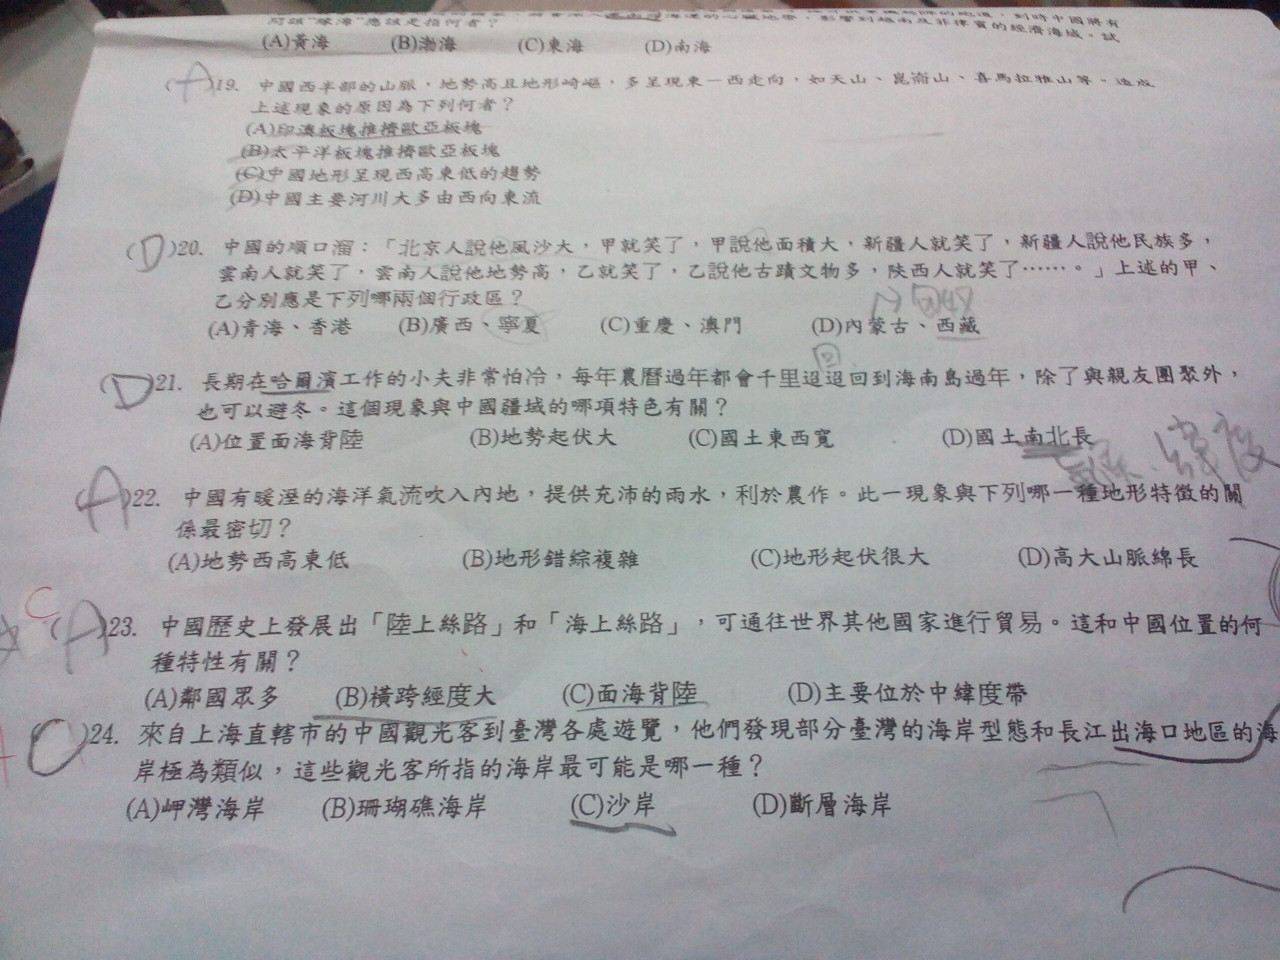 何謂"綠灣"應該是指何者？
(A)黃海 (B)渤海 (C)東海 (D)南海
(A)19. 中國西半部的山脈，地勢高且地形崎嶇，多呈現東－西走向，如天山、崑崙山、喜馬拉雅山等。造成
上述現象的原因為下列何者？
(A)印澳板塊推擠歐亞板塊
(B)太平洋板塊推擠歐亞板塊
(C)中國地形呈現西高東低的趨勢
(D)中國主要河川大多由西向東流
(D)20. 中國的順口溜：「北京人說他風沙大，甲就笑了，甲說他面積大，新疆人就笑了，新疆人說他民族多，
雲南人就笑了，雲南人說他地勢高，乙就笑了，乙說他古蹟文物多，陝西人就笑了……。」上述的甲、
乙分別應是下列哪兩個行政區？
(A)青海、香港 (B)廣西、寧夏 (C)重慶、澳門 (D)內蒙古、西藏
回
(D)21. 長期在哈爾濱工作的小夫非常怕冷，每年農曆過年都會千里迢迢回到海南島過年，除了與親友團聚外，
也可以避冬。這個現象與中國疆域的哪項特色有關？
(A)位置面海背陸 (B)地勢起伏大 (C)國土東西寬 (D)國土南北長
緯度
(A)22. 中國有暖溼的海洋氣流吹入內地，提供充沛的雨水，利於農作。此一現象與下列哪一種地形特徵的關
係最密切？
(A)地勢西高東低 (B)地形錯綜複雜 (C)地形起伏很大 (D)高大山脈綿長
C
(A)23. 中國歷史上發展出「陸上絲路」和「海上絲路」，可通往世界其他國家進行貿易。這和中國位置的何
種特性有關？
(A)鄰國眾多 (B)橫跨經度大 (C)面海背陸 (D)主要位於中緯度帶
(C)24. 來自上海直轄市的中國觀光客到臺灣各處遊覽，他們發現部分臺灣的海岸型態和長江出海口地區的海
岸極為類似，這些觀光客所指的海岸最可能是哪一種？
(A)岬灣海岸 (B)珊瑚礁海岸 (C)沙岸 (D)斷層海岸